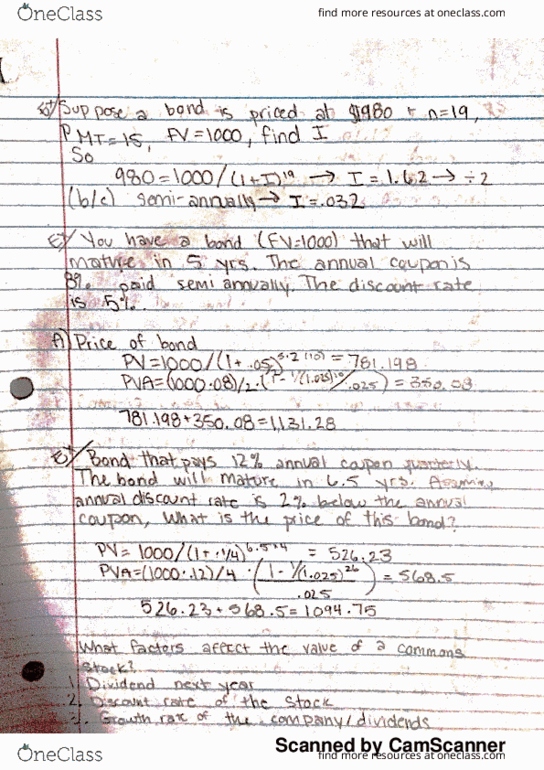 OneClass
find more resources at oneclass.com
Ex/ Suppose a bond is priced at $980 + n=19,
PMT=15, FV=1000, find I
So
980=1000/(1+I)¹⁹ → I=1.62→ ÷2
(b/c) semi-annually→ I=.032
Ex/ You have a bond (FV=1000) that will
mature in 5 yrs. The annual coupon is
8% paid semi annually. The discount rate
is 5%.
A) Price of bond
PV=1000/(1+.05)⁵·² ⁽¹⁰⁾ = 781.198
PVA=(1000·08)/2·(1-1/(1.025)¹⁰/.025) = 350.08
781.198+350.08=1,131.28
Ex/ Bond that pays 12% annual coupon quarterly.
The bond will mature in 6.5 yrs. Assuming
annual discount rate is 2% below the annual
coupon, What is the price of this bond?
PV= 1000/(1+.1/4)⁶·⁵*⁴ = 526.23
PVA=(1000·.12)/4 ·(1-1/(1.025)²⁶/.025) = 568.5
526.23+568.5=1094.75
What factors affect the value of a commons
stock?
1. Dividend next year
2. Discount rate of the stock
3. Growth rate of the company/dividends
Scanned by CamScanner
OneClass
find more resources at oneclass.com